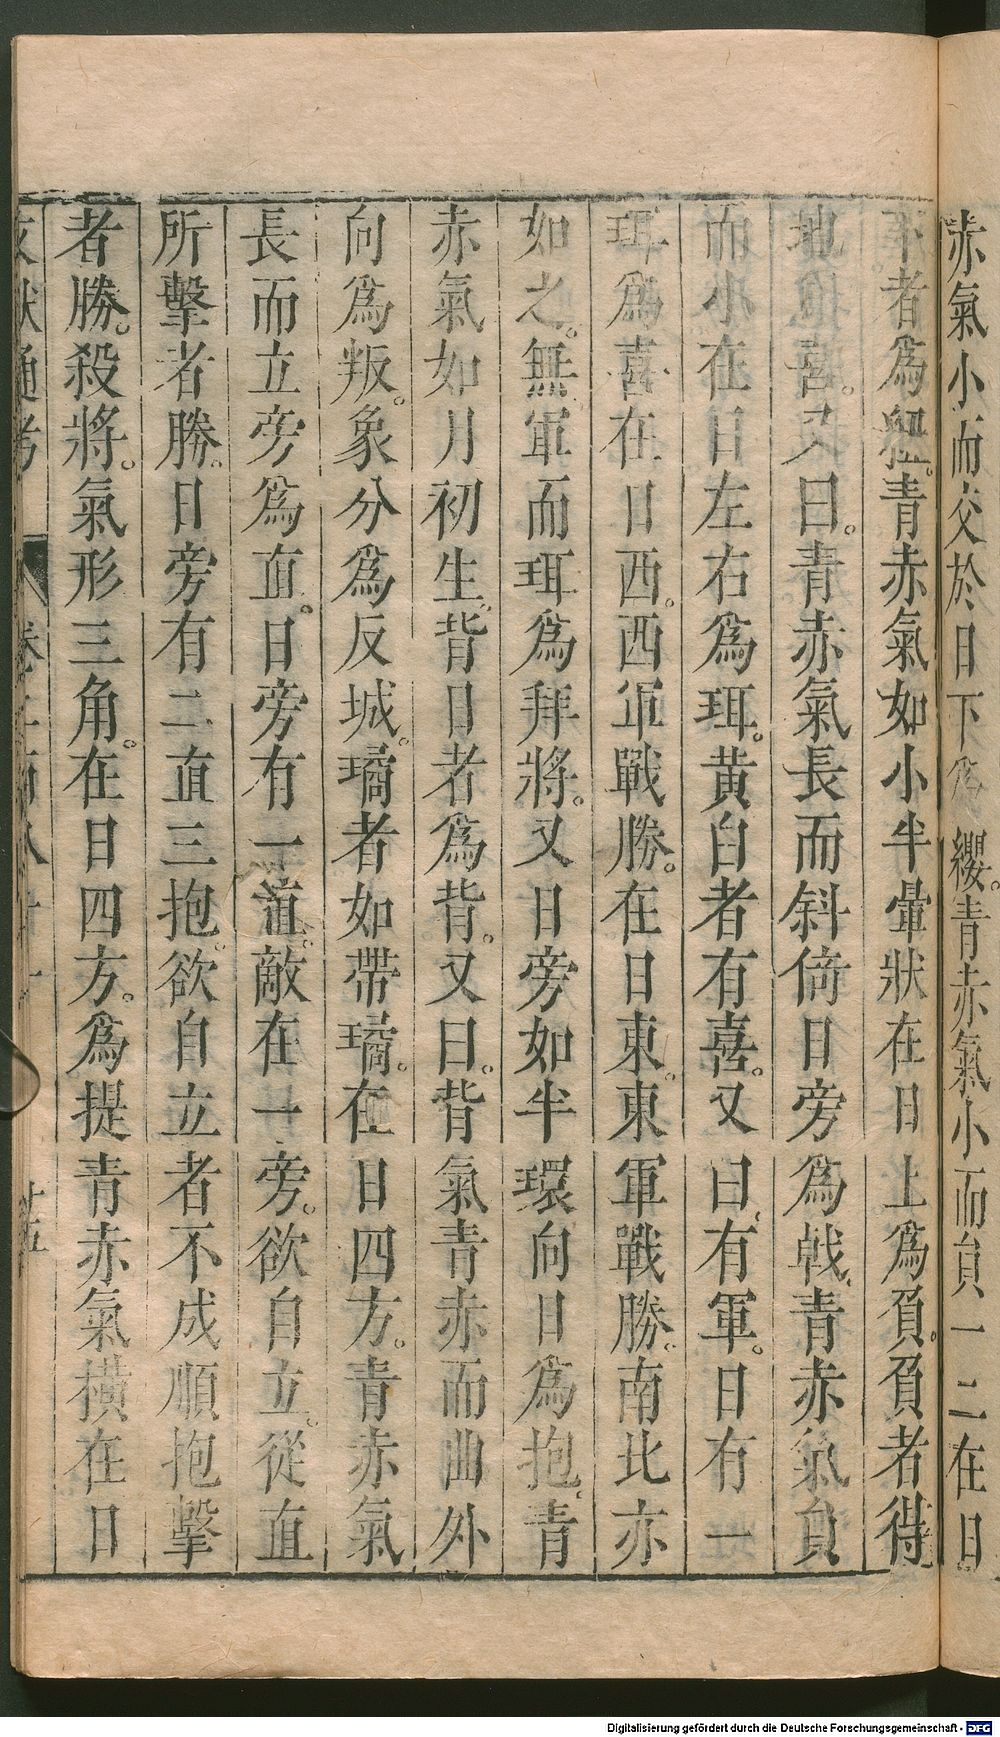 赤氣小而交於日下為纓。青赤氣小而負一二在日
下者為紐。青赤氣如小半暈狀在日上為負。負者得
地抱喜。又曰。青赤氣長而斜倚日旁為戟、青赤氣負
而小在日左右為珥。黃白者有喜。又曰、有軍。日有一
珥為喜在日西。西軍戰勝。在日東。東軍戰勝。南北亦
如之。無軍而珥為拜將。又日旁如半環向日為抱、青
赤氣如月初生。背日者為背。又曰。背氣青赤而曲外
向為叛。象分為反城。璚者如帶璚。在日四方。青赤氣
長而立旁為直。日旁有一直。敵在一旁。欲自立。從直
所擊者勝。日旁有二直三抱。欲自立者不成順抱擊
者勝。殺將。氣形三角。在日四方。為提青赤氣橫在日
文獻通考 卷二百八十一 十五
Digitalisierung gefördert durch die Deutsche Forschungsgemeinschaft - DFG